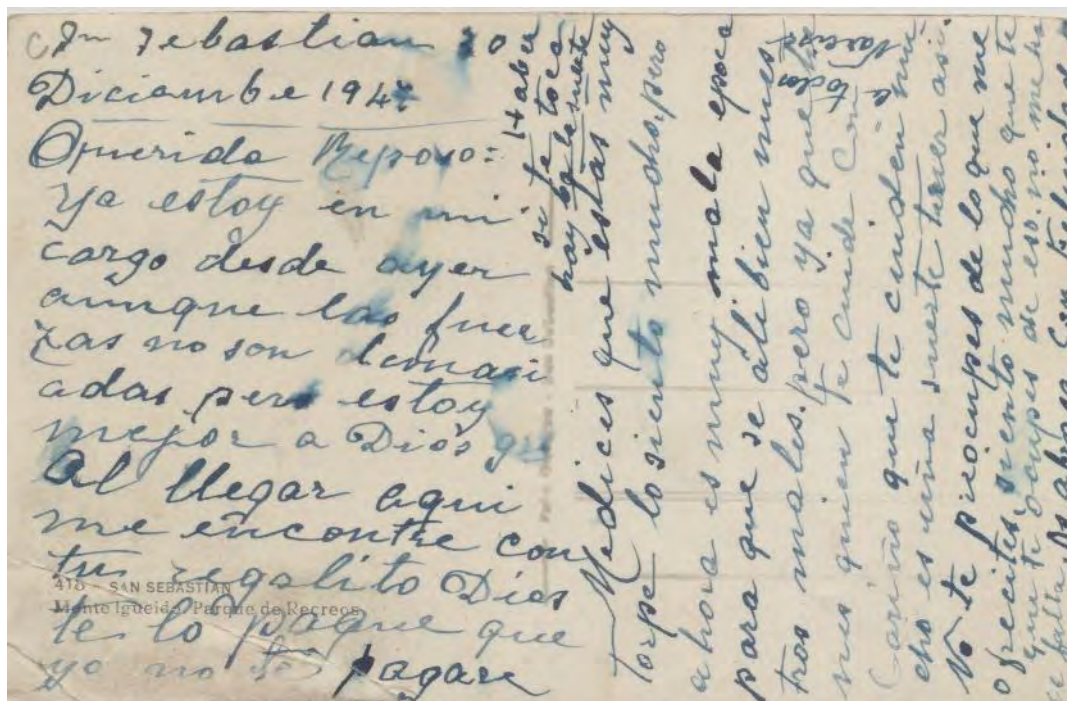 Sn Sebastian 20
Diciembre 194
Querida Reposo:
Ya estoy en mi
cargo desde ayer
aunque las fuer
zas no son demasi
adas pero estoy
mejor a Dios gr
Al llegar aqui
me encontre con
tu regalito Dios
te lo pague que
yo no te pagare
418 - SAN SEBASTIAN
Monte Igueldo. Parque de Recreos.
Me dices que estas muy
torpe lo siento mucho, pero
ahora es muy mala epoca
para que se alibien nues
tros males. pero ya que tie
nes quien te cuide con
cariño que te cuiden mu
cho es una suerte tener asi.
No te preocupes de lo que me
ofrecites, siento mucho que te
que te ocupes de eso. no me ha
ce falta Os abraza con felicidad
a todos
Narcisa
H aber
si te toca
hoy la suerte